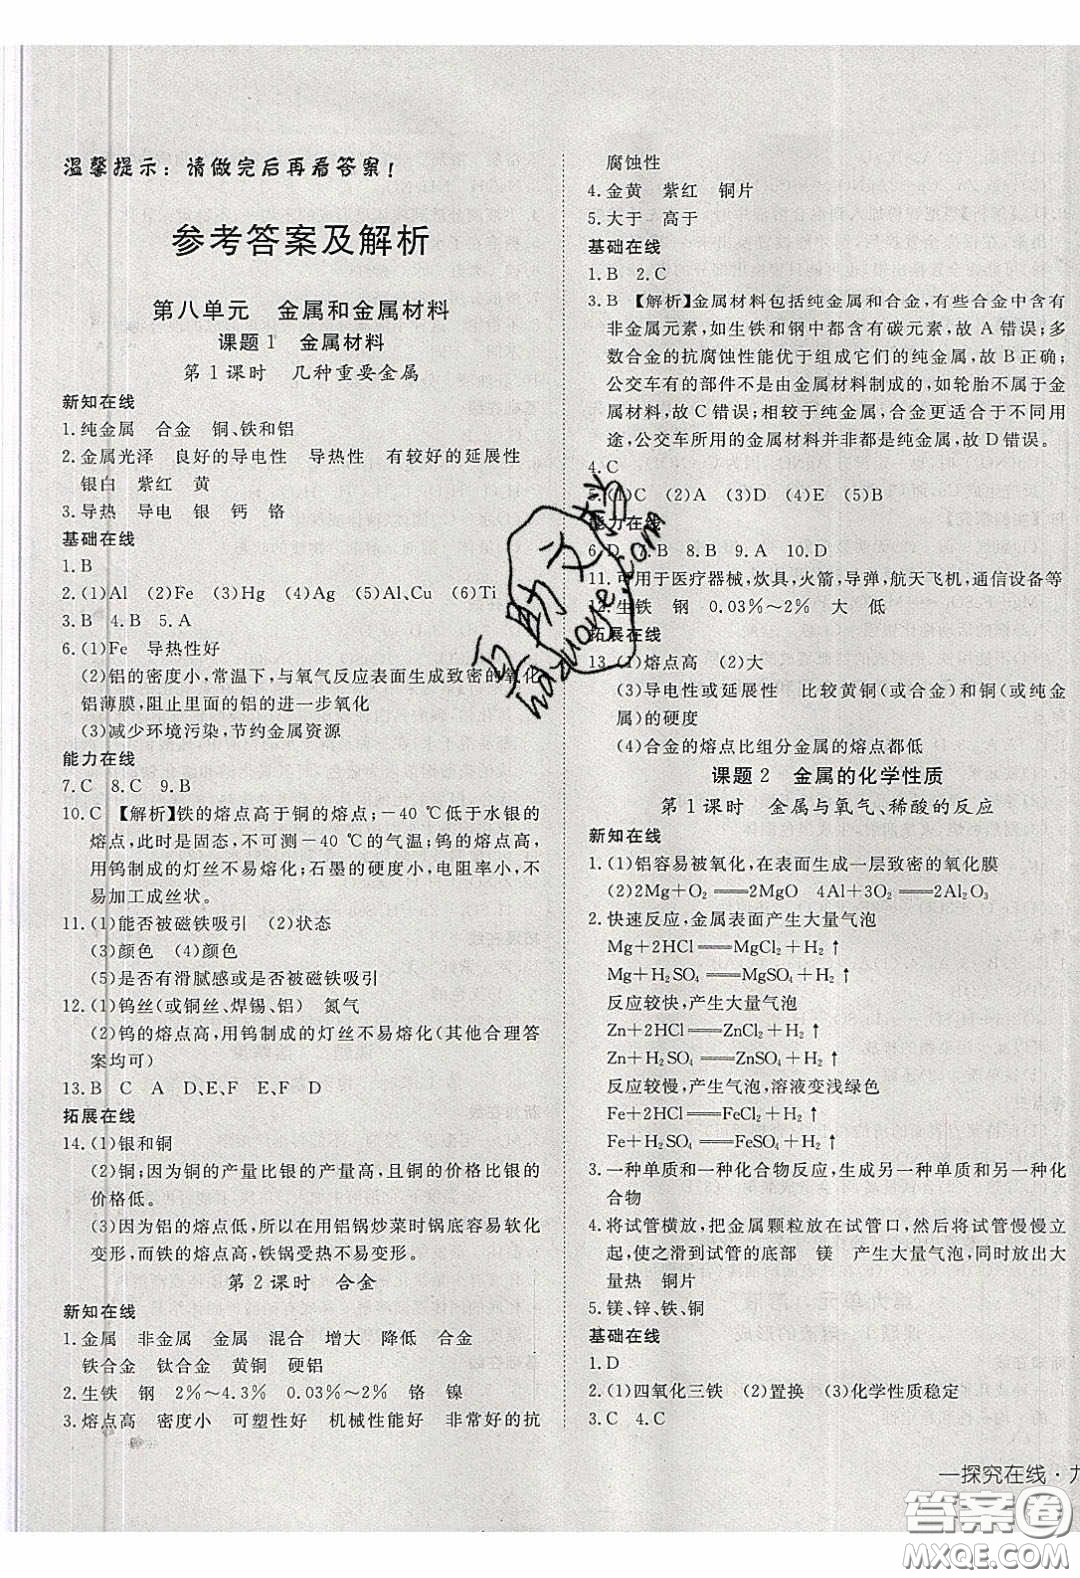 温馨提示：请做完后再看答案！
参考答案及解析
第八单元　金属和金属材料
课题1　金属材料
第1课时　几种重要金属
新知在线
1.纯金属　合金　铜、铁和铝
2.金属光泽　良好的导电性　导热性　有较好的延展性
银白　紫红　黄
3.导热　导电　银　钙　铬
基础在线
1.B
2.(1)Al　(2)Fe　(3)Hg　(4)Ag　(5)Al、Cu　(6)Ti
3.B　4.B　5.A
6.(1)Fe　导热性好
(2)铝的密度小，常温下，与氧气反应表面生成致密的氧化
铝薄膜，阻止里面的铝的进一步氧化
(3)减少环境污染，节约金属资源
能力在线
7.C　8.C　9.B
10.C　【解析】铁的熔点高于铜的熔点；－40 ℃低于水银的
熔点，此时是固态，不可测－40 ℃的气温；钨的熔点高，
用钨制成的灯丝不易熔化；石墨的硬度小，电阻率小，不
易加工成丝状。
11.(1)能否被磁铁吸引　(2)状态
(3)颜色　(4)颜色
(5)是否有滑腻感或是否被磁铁吸引
12.(1)钨丝(或铜丝、焊锡、铝)　氮气
(2)钨的熔点高，用钨制成的灯丝不易熔化(其他合理答
案均可)
13.B　C　A　D、E、F　E、F　D
拓展在线
14.(1)银和铜
(2)铜；因为铜的产量比银的产量高，且铜的价格比银的
价格低。
(3)因为铝的熔点低，所以在用铝锅炒菜时锅底容易软化
变形，而铁的熔点高，铁锅受热不易变形。
第2课时　合金
新知在线
1.金属　非金属　金属　混合　增大　降低　合金
铁合金　钛合金　黄铜　硬铝
2.生铁　钢　2%～4.3%　0.03%～2%　铬　镍
3.熔点高　密度小　可塑性好　机械性能好　非常好的抗
腐蚀性
4.金黄　紫红　铜片
5.大于　高于
基础在线
1.B　2.C
3.B　【解析】金属材料包括纯金属和合金，有些合金中含有
非金属元素，如生铁和钢中都含有碳元素，故 A 错误；多
数合金的抗腐蚀性能优于组成它们的纯金属，故 B 正确；
公交车有的部件不是由金属材料制成的，如轮胎不属于金
属材料，故 C 错误；相较于纯金属，合金更适合于不同的用
途，公交车所用的金属材料并非都是纯金属，故 D 错误。
4.C
5.(1)C　(2)A　(3)D　(4)E　(5)B
能力在线
6.D　7.B　8.B　9.A　10.D
11.可用于医疗器械，炊具，火箭，导弹，航天飞机，通信设备等
12.生铁　钢　0.03%～2%　大　低
拓展在线
13.(1)熔点高　(2)大
(3)导电性或延展性　比较黄铜(或合金)和铜(或纯金
属)的硬度
(4)合金的熔点比组分金属的熔点都低
课题2　金属的化学性质
第1课时　金属与氧气、稀酸的反应
新知在线
1.(1)铝容易被氧化，在表面生成一层致密的氧化膜
(2)2Mg＋O₂══2MgO　4Al＋3O₂══2Al₂O₃
2.快速反应，金属表面产生大量气泡
Mg＋2HCl══MgCl₂＋H₂↑
Mg＋H₂SO₄══MgSO₄＋H₂↑
反应较快，产生大量气泡
Zn＋2HCl══ZnCl₂＋H₂↑
Zn＋H₂SO₄══ZnSO₄＋H₂↑
反应较慢，产生气泡，溶液变浅绿色
Fe＋2HCl══FeCl₂＋H₂↑
Fe＋H₂SO₄══FeSO₄＋H₂↑
3.一种单质和一种化合物反应，生成另一种单质和另一种化
合物
4.将试管横放，把金属颗粒放在试管口，然后将试管慢慢立
起，使之滑到试管的底部　镁　产生大量气泡，同时放出大
量热　铜片
5.镁、锌、铁、铜
基础在线
1.D
2.(1)四氧化三铁　(2)置换　(3)化学性质稳定
3.C　4.C
一探究在线·九
互助文学
hazuoye.com
答案圈
MXQE.COM